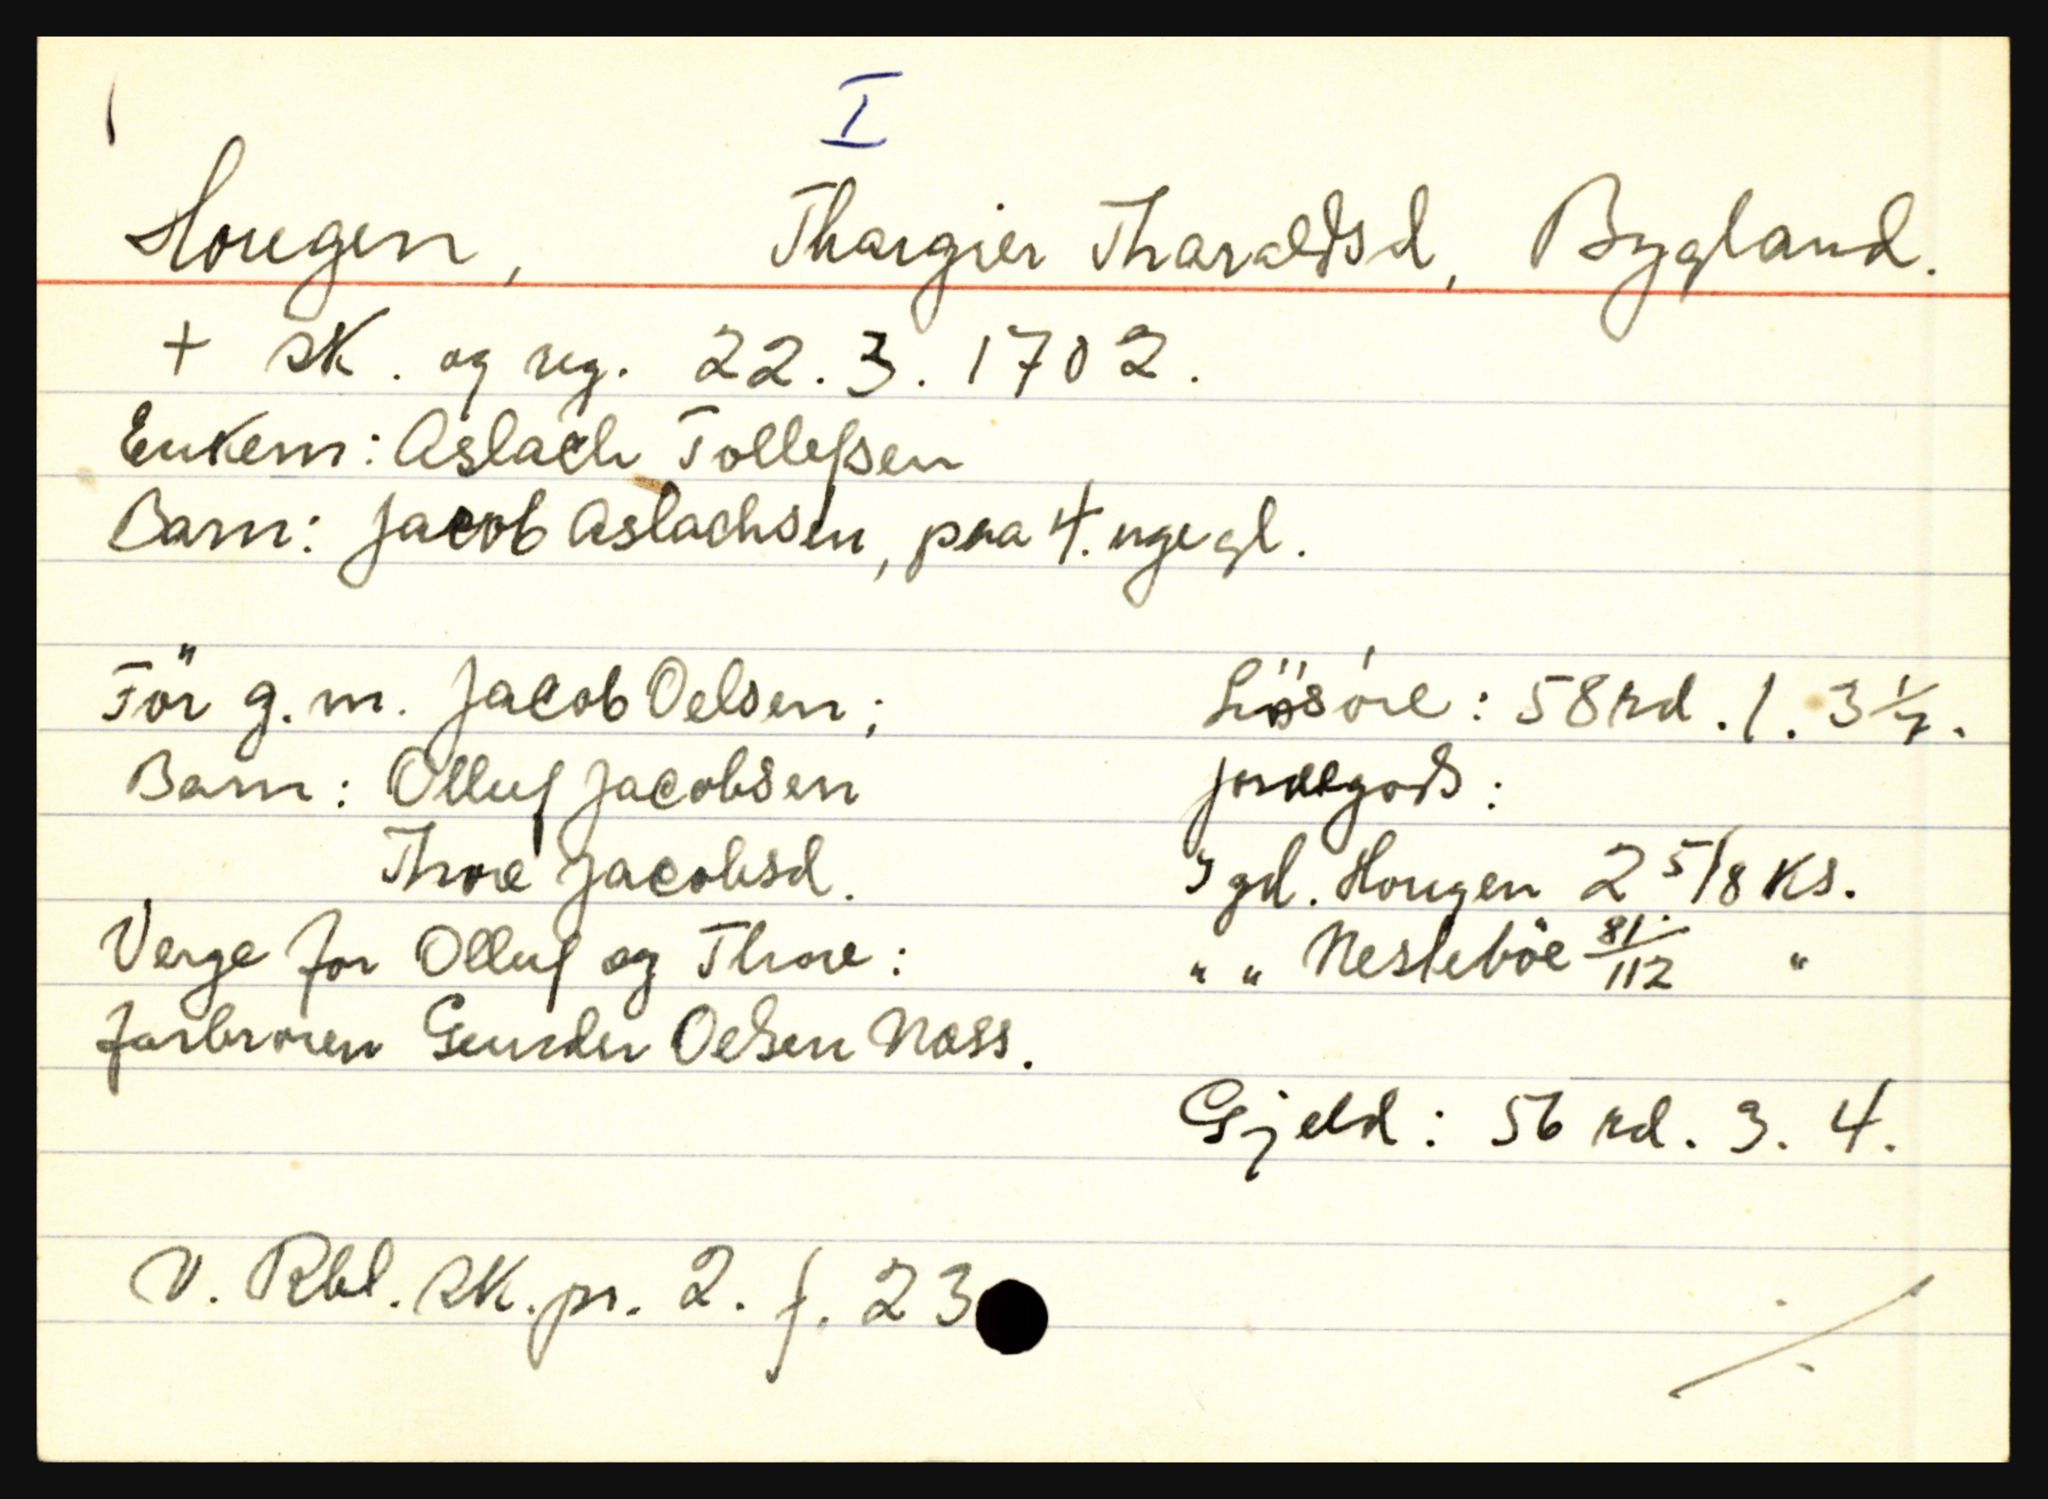 I
Hougen, Thargier Tharaldsd, Bygland.
+ sk. og reg. 22.3.1702.
Enkem: Aslach Tollefsen
Barn: Jacob Aslachsen, paa 4. uge gl.
För g.m. Jacob Oelsen;
Barn: Olluf Jacobsen
Thore Jacobsd.
Verge for Olluf og Thore:
farbroren Gunder Oelsen Nass.
Lösöre: 58 rd. 1. 3 1/7.
Jordegods:
I gd. Hougen 2 5/8 ks.
" " Nesteböe 81/112 "
Gjeld: 56 rd. 3. 4.
V. Rbl. sk. pr. 2. f. 23